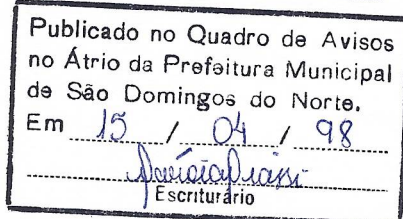 Publicado no Quadro de Avisos
no Átrio da Prefeitura Municipal
de São Domingos do Norte.
Em 15 / 04 / 98
Escriturário